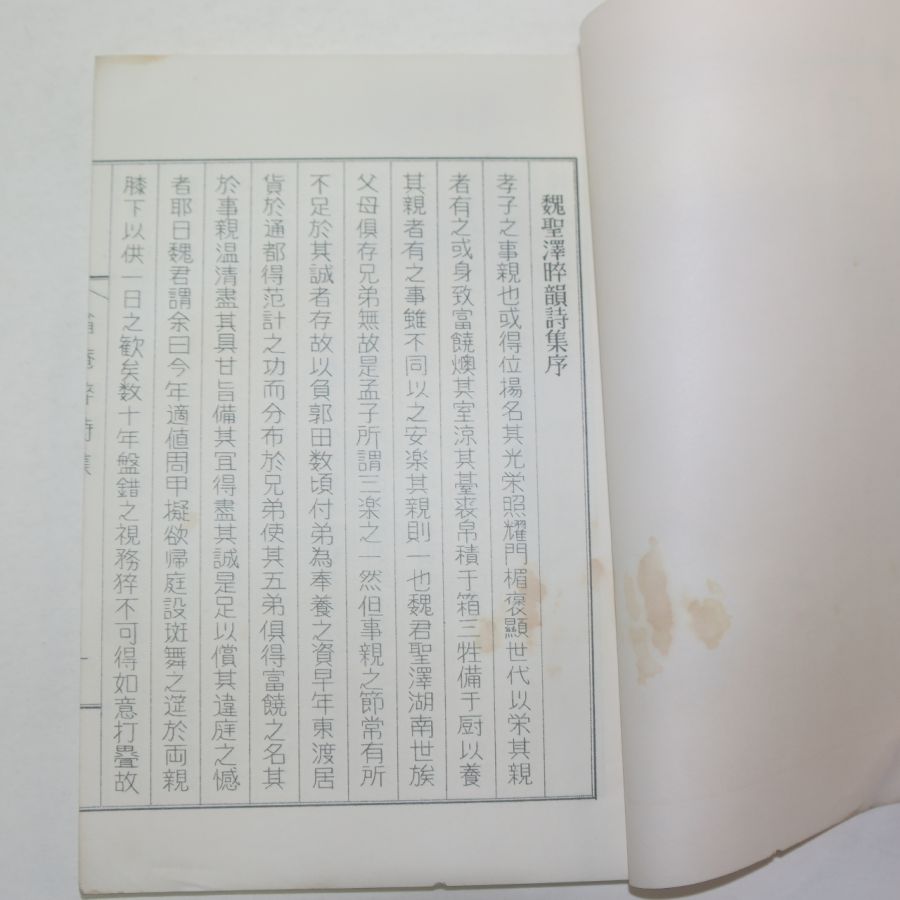 魏聖澤晬韻詩集序
孝子之事親也或得位揚名其光栄照耀門楣褒顯世代以栄其親
者有之或身致富饒燠其室涼其臺裘帛積于箱三牲備于厨以養
其親者有之事雖不同以之安楽其親則一也魏君聖澤湖南世族
父母俱存兄弟無故是孟子所謂三楽之一然但事親之節常有所
不足於其誠者存故以負郭田数頃付弟為奉養之資早年東渡居
貨於通都得范計之功而分布於兄弟使其五弟俱得富饒之名其
於事親温清盡其具甘旨備其宜得盡其誠是足以償其違庭之憾
者耶日魏君謂余曰今年適値周甲擬欲帰庭設斑舞之筵於両親
膝下以供一日之歓矣数十年盤錯之視務猝不可得如意打疊故
晬詩集